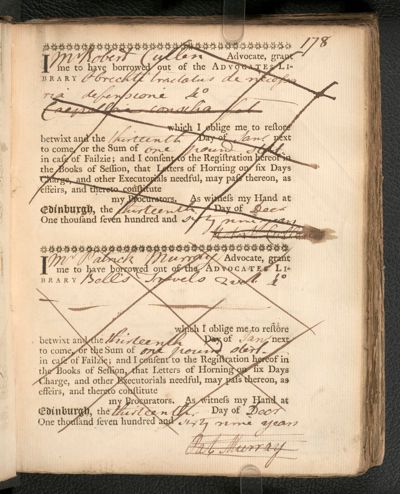 178
I Mr Robert Cullen Advocate, grant
me to have borrowed out of the ADVOCATES LI-
BRARY Obrechti tractatus de necessa
ria defensione 4o
which I oblige me to restore
betwixt and the thirteenth Day of Jany next
to come, or the Sum of one pound sterl.
in case of Failzie; and I consent to the Registration hereof in
the Books of Session, that Letters of Horning on six Days
Charge, and other Executorials needful, may pass thereon, as
effeirs, and thereto constitute
my Procurators. As witness my Hand at
Edinburgh, the thirteenth Day of Decr
One thousand seven hundred and sixty nine years
I Mr Patrick Murray Advocate, grant
me to have borrowed out of the ADVOCATES LI-
BRARY Bell's Travels 2 vols 4o
which I oblige me to restore
betwixt and the thirteenth Day of Jany next
to come, or the Sum of one pound sterl.
in case of Failzie; and I consent to the Registration hereof in
the Books of Session, that Letters of Horning on six Days
Charge, and other Executorials needful, may pass thereon, as
effeirs, and thereto constitute
my Procurators. As witness my Hand at
Edinburgh, the thirteenth Day of Decr
One thousand seven hundred and sixty nine years
Pat: Murray